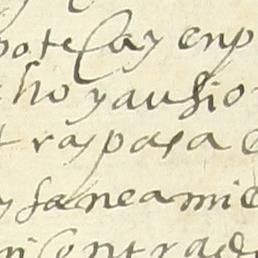 pote Cay enp
cho yausio
traspasa e
y saneamie
n contrade